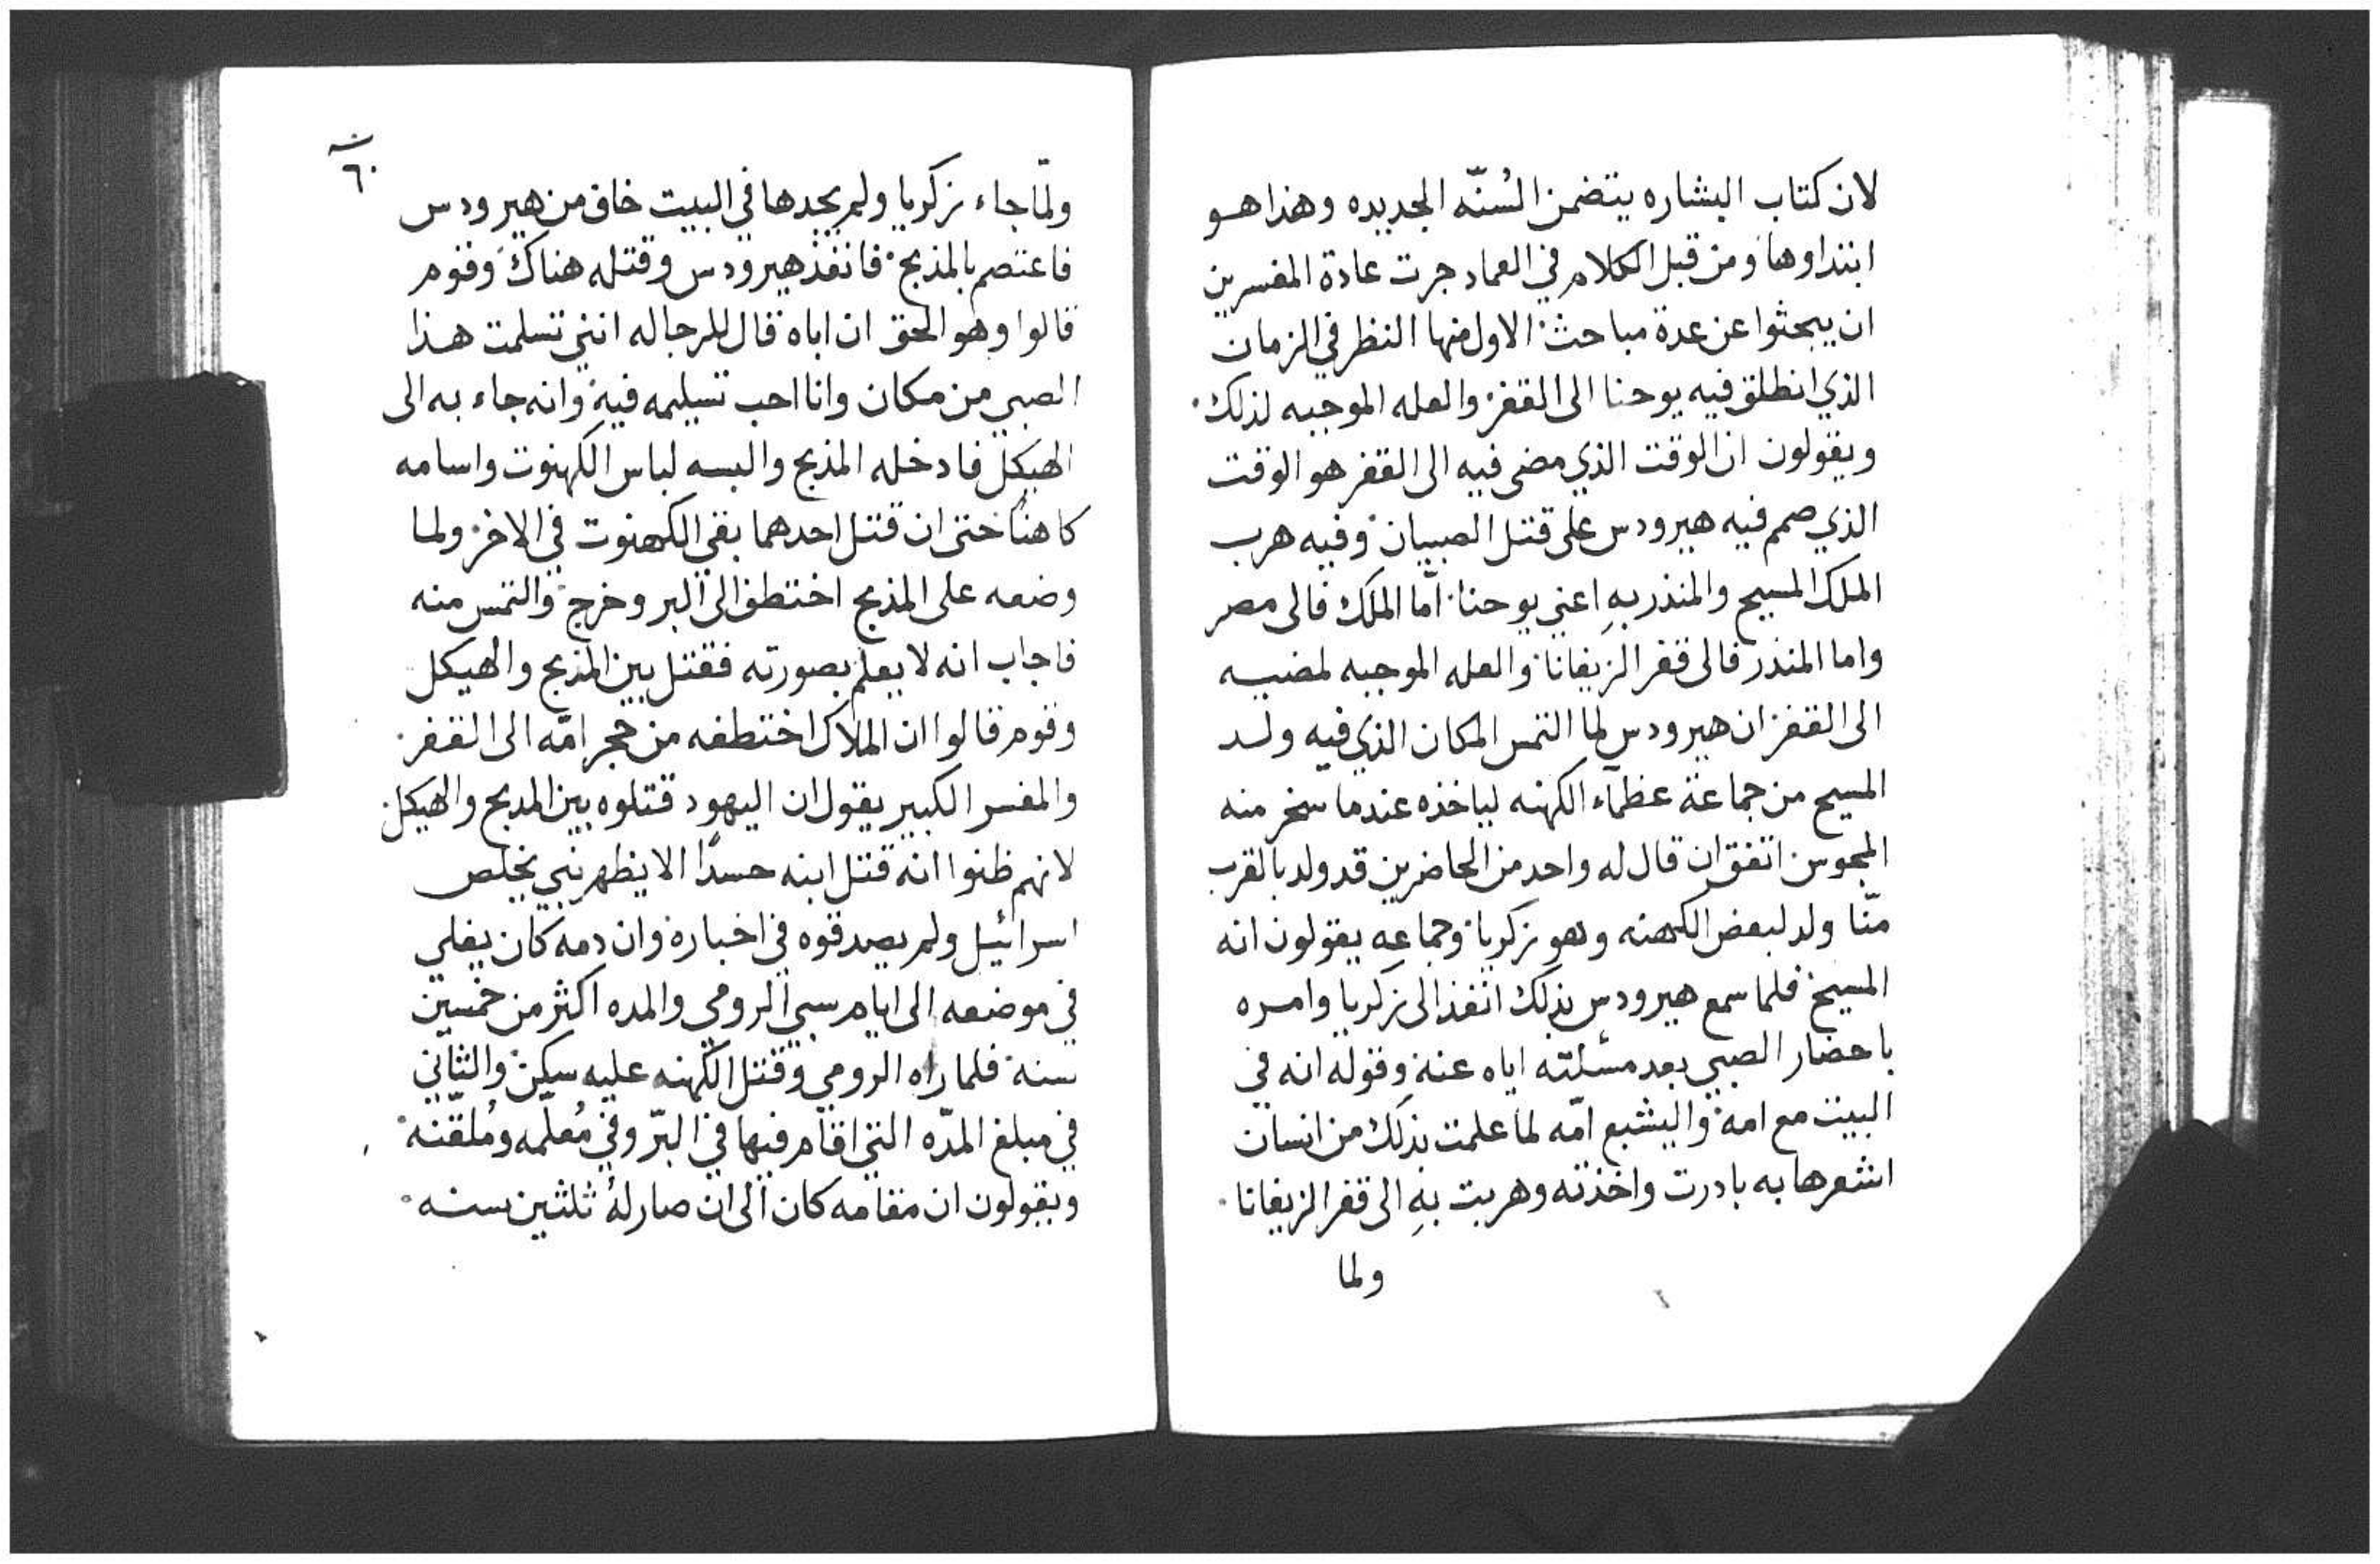 لان كتاب البشاره يتضمن السُنّه الجديده وهذا هو
ابتداوها ومن قبل الكلام في العماد جرت عادة المفسرين
ان يبحثوا عن عدة مباحث الاول منها النظر في الزمان
الذي انطلق فيه يوحنا الى القفر والعله الموجبه لذلك
ويقولون ان الوقت الذي مضى فيه الى القفر هو الوقت
الذي صمم فيه هيرودس على قتل الصبيان وفيه هرب
الملك المسيح والمنذر بهِ اعني يوحنا امّا الملك فالى مصر
واما المنذر فالى قفر الزيفانا والعله الموجبه لمضيه
الى القفر ان هيرودس لما التمس المكان الذي فيه ولد
المسيح من جماعة عظمآء الكهنه لياخذه عندما سخر منه
المجوس اتفق ان قال له واحد من الحاضرين قد ولد بالقرب
منّا ولد لبعض الكهنه وهو زكريا وجماعه يقولون انه
المسيح فلما سمع هيرودس بذلك انفذ الى زكريا وامره
باحضار الصبي بعد مسئلته اياه عنهِ وقوله انه في
البيت مع امه واليشبع امّه لما علمت بذلك من انسان
اشعرها به بادرت واخذته وهربت بهِ الى قفر الزيفانا
ولما
٦٠
ولمّا جاء زكريا ولم يجدها في البيت خاف من هيرودس
فاعتصم بالمذبح فانفذ هيرودس وقتله هناك وقوم
قالوا وهو الحق ان اباه قال للرجاله انني تسلمت هذا
الصبي من مكان وانا احب تسليمه فيه وانه جاء به الى
الهيكل فادخله المذبح والبسه لباس الكهنوت واسامه
كاهنًا حتى ان قتل احدهما بقي الكهنوت في الاخر ولما
وضعه على المذبح اختطف الى البر وخرج والتمس منه
فاجاب انه لا يعلم بصورته فقتل بين المذبح والهيكل
وقوم قالوا ان الملاك اختطفه من حجر امّه الى القفر
والمفسر الكبير يقول ان اليهود قتلوه بين المدبح والهيكل
لانهم ظنوا انه قتل ابنه حسدًا الا يظهر نبي يخلص
اسرائيل ولم يصدقوه في اخباره وان دمه كان يغلي
في موضعه الى ايام سبي الرومي والمده اكثر من خمسين
سنه فلما راه الرومي وقتل الكهنه عليه سكن والثاني
في مبلغ المدّه التي اقام فيها في البرّ وفي مُعلّمه ومُلقّنه
ويقولون ان مقامه كان الى ان صار لهُ ثلثين سنه